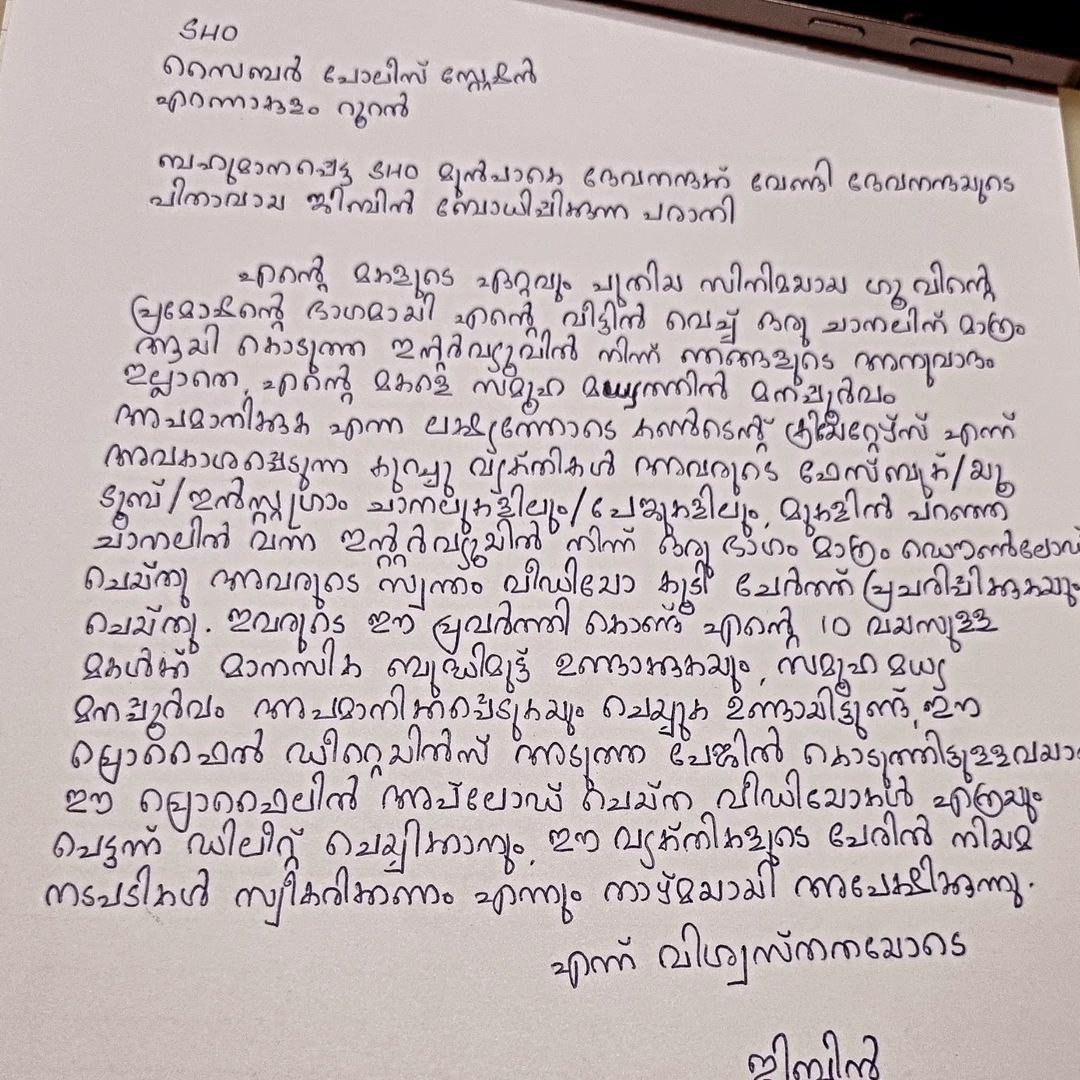 SHO
സൈബർ പോലിസ് സ്റ്റേഷൻ
എറണാകുളം റൂറൽ
ബഹുമാനപ്പെട്ട SHO മുൻപാകെ ദേവനന്ദക്ക് വേണ്ടി ദേവനന്ദയുടെ
പിതാവായ ജിബിൻ ബോധിപ്പിക്കുന്ന പരാതി
എന്റെ മകളുടെ ഏറ്റവും പുതിയ സിനിമയായ ഗു വിന്റെ
പ്രമോഷന്റെ ഭാഗമായി എന്റെ വീട്ടിൽ വെച്ച് ഒരു ചാനലിന് മാത്രം
ആയി കൊടുത്ത ഇന്റർവ്യൂവിൽ നിന്ന് ഞങ്ങളുടെ അനുവാദം
ഇല്ലാതെ, എന്റെ മകളെ സമൂഹ മധ്യത്തിൽ മനപ്പൂർവം
അപമാനിക്കുക എന്ന ലക്ഷ്യത്തോടെ കണ്ടെന്റ് ക്രിയേറ്റേഴ്സ് എന്ന്
അവകാശപ്പെടുന്ന കുറച്ചു വ്യക്തികൾ അവരുടെ ഫേസ്ബുക്/യൂ
ട്യൂബ്/ഇൻസ്റ്റഗ്രാം ചാനലുകളിലും/പേജുകളിലും, മുകളിൽ പറഞ്ഞ
ചാനലിൽ വന്ന ഇന്റർവ്യൂയിൽ നിന്ന് ഒരു ഭാഗം മാത്രം ഡൌൺലോഡ്
ചെയ്തു അവരുടെ സ്വന്തം വീഡിയോ കൂടി ചേർത്ത് പ്രചരിപ്പിക്കുകയും
ചെയ്തു. ഇവരുടെ ഈ പ്രവർത്തി കൊണ്ട് എന്റെ 10 വയസുള്ള
മകൾക്ക് മാനസിക ബുദ്ധിമുട്ട് ഉണ്ടാക്കുകയും, സമൂഹ മധ്യ
മനപ്പൂർവം അപമാനിക്കപ്പെടുകയും ചെയ്യുക ഉണ്ടായിട്ടുണ്ട്, ഈ
പ്രൊഫൈൽ ഡീറ്റെയിൽസ് അടുത്ത പേജിൽ കൊടുത്തിട്ടുള്ളവയാ
ഈ പ്രൊഫൈലിൽ അപ്‌ലോഡ് ചെയ്ത വീഡിയോകൾ എത്രയും
പെട്ടന്ന് ഡിലീറ്റ് ചെയ്യിക്കാനും, ഈ വ്യക്തികളുടെ പേരിൽ നിയമ
നടപടികൾ സ്വീകരിക്കണം എന്നും താഴ്മയായി അപേക്ഷിക്കുന്നു.
എന്ന് വിശ്വസ്തതയോടെ
ജിബിൻ